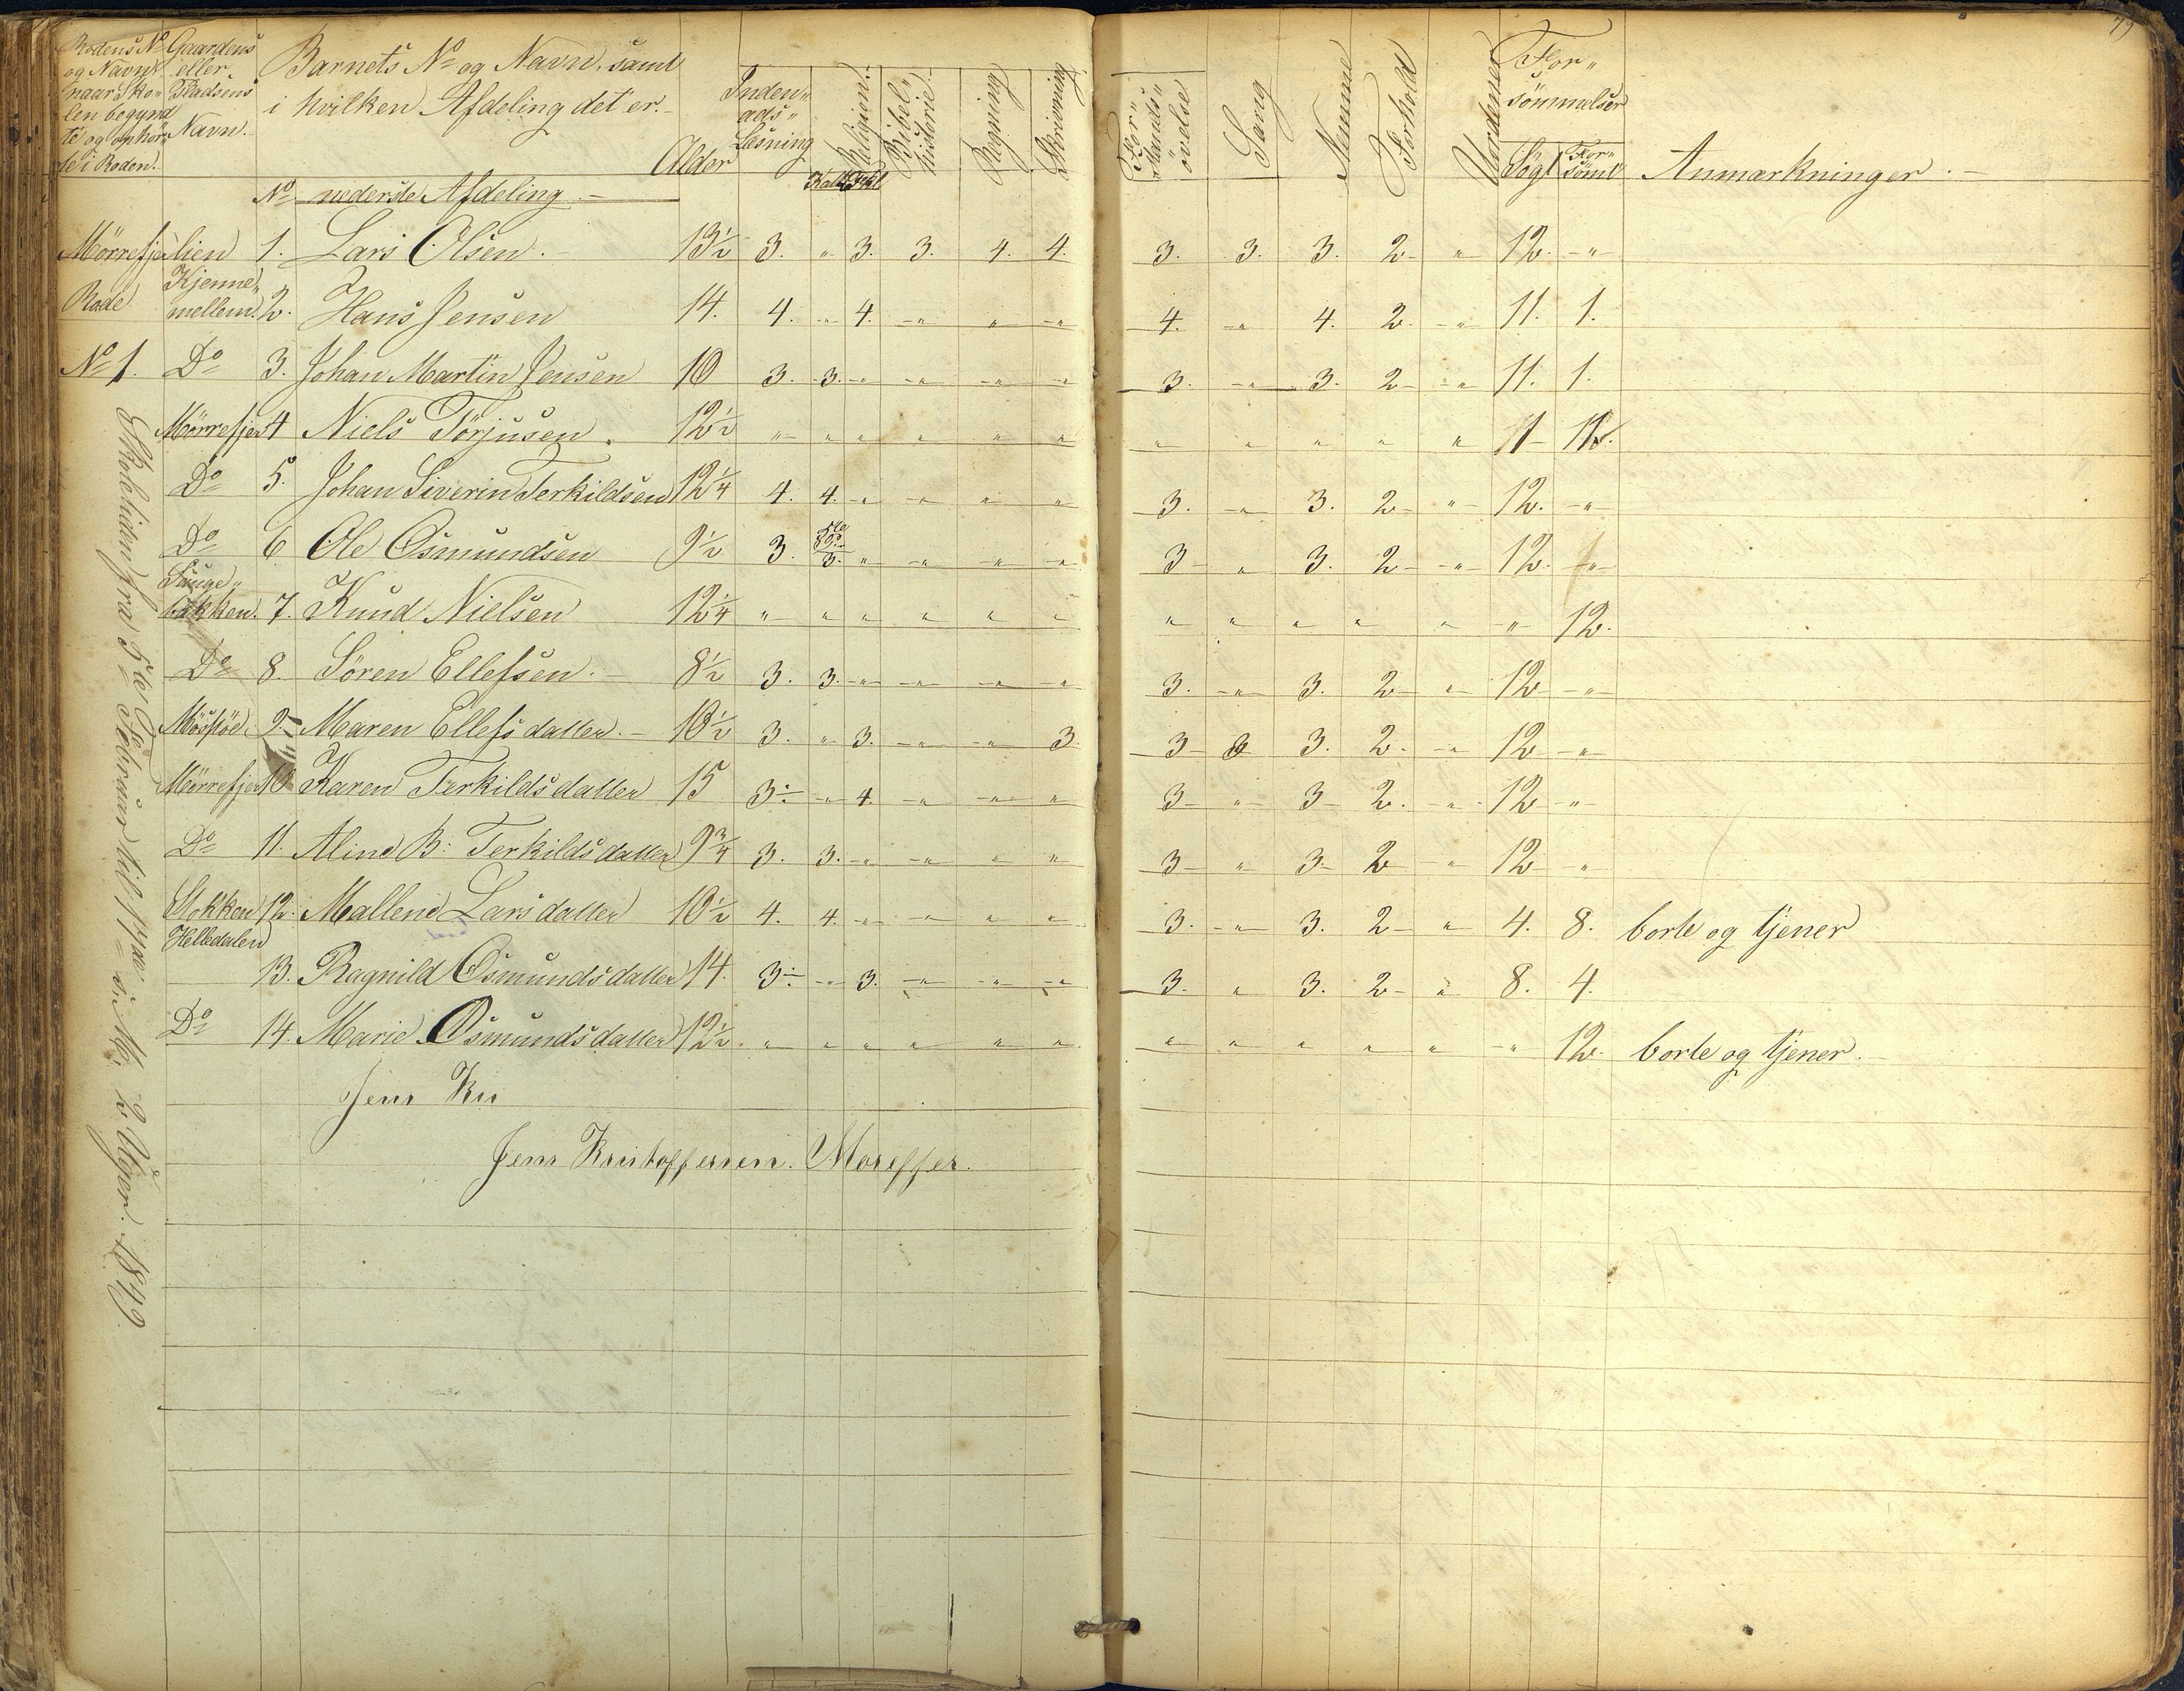 79
Rodens No og Navn naar Skolen begyndte og ophørte i Roden.
Gaardens eller Pladsens Navn.
Barnets No og Navn, samt i hvilken Afdeling det er.
Alder
Inden„ads„Læsning
Religion.
Bibel„historie
Regning
Skrivning
For„stands„øvelse
Sang
Nemme
Forhold
For„sømmelser
Søgt For„sømt
Anmærkninger.
No nederste Afdeling
Mørrefjer lien 1. Lars Olsen. 13½ 3. „ 3. 3. 4. 4. 3. 3. 3. 2 „ 12. „
Rode Kjenne„mellem. 2. Hans Jensen 14. 4. „ 4. „ „ „ 4. „ 4. 2. „ 11. 1.
No 1. Do 3. Johan Martin Jensen 10 3. 3. „ „ „ „ 3. „ 3. 2 „ 11. 1.
Mørrefjer 4 Niels Torjusen. 12½ „ „ „ „ „ „ „ „ „ „ „
Do 5. Johan Siverin Terkildsen 12¼ 4. 4. „ „ „ „ 3. „ 3. 2 „ 12. „
Do 6 Ole Osmundsen 9½ 3. 3. „ „ „ „ 3 „ 3. 2 „ 12. „
bakken. 7. Knud Nielsen 12¼ „ „ „ „ „ „ „ „ „ „ „ „ 12.
Do 8. Søren Ellefsen. 8½ 3. 3. „ „ „ „ 3. „ 3. 2 „ 12 „
9. Maren Ellefsdatter. 10½ 3. „ 3. „ „ 3. 3 3 3. 2. „ 12 „
Mørrefjer 10 Karen Terkildsdatter 15 3 „ 4. „ „ „ 3 „ 3 2. „ 12 „
Do 11. Aline B: Terkildsdatter 9¾ 3. 3. „ „ „ „ 3 „ 3 2 „ 12 „
Stokken 12. Mallene Larsdatter 10½ 4. 4. „ „ „ „ 3. „ 3. 2 „ 4. 8. borte og tjener
Helledalen
13. Ragnild Osmundsdatter 14. 3 „ 3. „ „ „ 3. „ 3. 2 „ 8. 4.
Do 14. Marie Osmundsdatter 12½. „ „ „ „ „ „ „ „ „ „ „ „ 12. borte og tjener.
Jens Kri
Jens Kristoffersen. Morefjer.
Skoletiden fra 5te Februar til 17de 2 Uger. 1849.